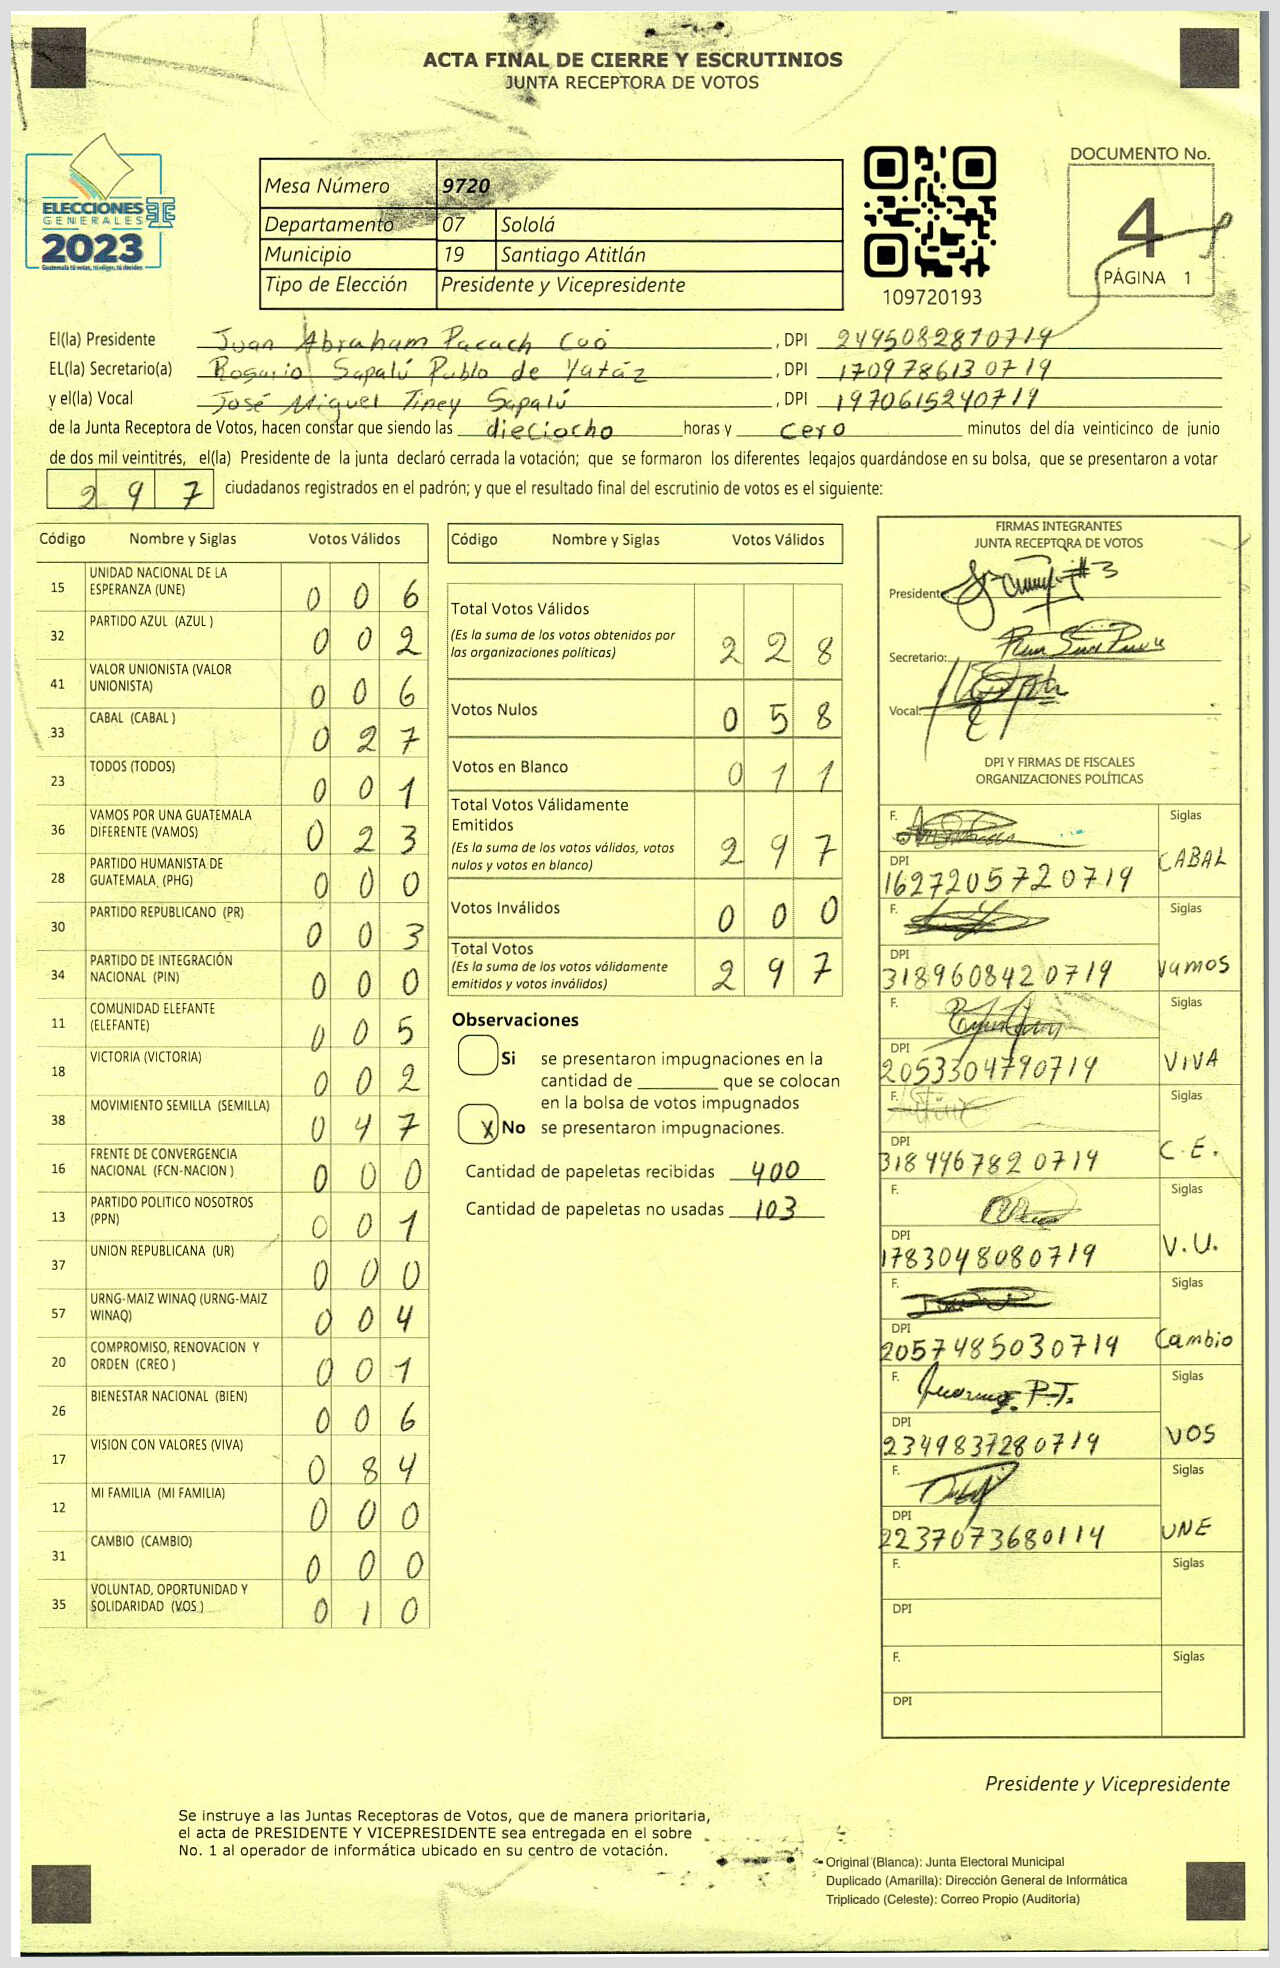 ACTA FINAL DE CIERRE Y ESCRUTINIOS
JUNTA RECEPTORA DE VOTOS
ELECCIONES
GENERALES
2023
Guatemala tú votas, tú eliges, tú decides
Mesa Número 9720
Departamento 07 Sololá
Municipio 19 Santiago Atitlán
Tipo de Elección Presidente y Vicepresidente
109720193
DOCUMENTO No.
4
PÁGINA 1
El(la) Presidente Juan Abraham Pacach Coó, DPI 2495082870719
EL(la) Secretario(a) Rosario Sapalú Pablo de Yatáz, DPI 1709786130719
y el(la) Vocal José Miguel Tiney Sapalú, DPI 1970615240719
de la Junta Receptora de Votos, hacen constar que siendo las dieciocho horas y cero minutos del día veinticinco de junio
de dos mil veintitrés, el(la) Presidente de la junta declaró cerrada la votación; que se formaron los diferentes legajos guardándose en su bolsa, que se presentaron a votar
297 ciudadanos registrados en el padrón; y que el resultado final del escrutinio de votos es el siguiente:
Código Nombre y Siglas Votos Válidos
15 UNIDAD NACIONAL DE LA ESPERANZA (UNE) 0 0 6
32 PARTIDO AZUL (AZUL ) 0 0 2
41 VALOR UNIONISTA (VALOR UNIONISTA) 0 0 6
33 CABAL (CABAL ) 0 2 7
23 TODOS (TODOS) 0 0 1
36 VAMOS POR UNA GUATEMALA DIFERENTE (VAMOS) 0 2 3
28 PARTIDO HUMANISTA DE GUATEMALA (PHG) 0 0 0
30 PARTIDO REPUBLICANO (PR) 0 0 3
34 PARTIDO DE INTEGRACIÓN NACIONAL (PIN) 0 0 0
11 COMUNIDAD ELEFANTE (ELEFANTE) 0 0 5
18 VICTORIA (VICTORIA) 0 0 2
38 MOVIMIENTO SEMILLA (SEMILLA) 0 4 7
16 FRENTE DE CONVERGENCIA NACIONAL (FCN-NACION ) 0 0 0
13 PARTIDO POLITICO NOSOTROS (PPN) 0 0 1
37 UNION REPUBLICANA (UR) 0 0 0
57 URNG-MAIZ WINAQ (URNG-MAIZ WINAQ) 0 0 4
20 COMPROMISO, RENOVACION Y ORDEN (CREO ) 0 0 1
26 BIENESTAR NACIONAL (BIEN) 0 0 6
17 VISION CON VALORES (VIVA) 0 8 4
12 MI FAMILIA (MI FAMILIA) 0 0 0
31 CAMBIO (CAMBIO) 0 0 0
35 VOLUNTAD, OPORTUNIDAD Y SOLIDARIDAD (VOS ) 0 1 0
Código Nombre y Siglas Votos Válidos
Total Votos Válidos
(Es la suma de los votos obtenidos por
las organizaciones políticas) 2 2 8
Votos Nulos 0 5 8
Votos en Blanco 0 1 1
Total Votos Válidamente
Emitidos
(Es la suma de los votos válidos, votos
nulos y votos en blanco) 2 9 7
Votos Inválidos 0 0 0
Total Votos
(Es la suma de los votos válidamente
emitidos y votos inválidos) 2 9 7
Observaciones
Si se presentaron impugnaciones en la
cantidad de ________ que se colocan
en la bolsa de votos impugnados
X No se presentaron impugnaciones.
Cantidad de papeletas recibidas 400
Cantidad de papeletas no usadas 103
FIRMAS INTEGRANTES
JUNTA RECEPTORA DE VOTOS
Presidente: #3
Secretario:
Vocal:
DPI Y FIRMAS DE FISCALES
ORGANIZACIONES POLÍTICAS
F. Siglas
DPI 1627205720719 CABAL
F. Siglas
DPI 3189608420719 Vamos
F. Siglas
DPI 2053304790719 VIVA
F. Siglas
DPI 3184467820719 C.E.
F. Siglas
DPI 1783048080719 V.U.
F. Siglas
DPI 2057485030719 Cambio
F. P.T. Siglas
DPI 2349837280719 VOS
F. Siglas
DPI 2237073680114 UNE
F. Siglas
DPI
F. Siglas
DPI
Presidente y Vicepresidente
Se instruye a las Juntas Receptoras de Votos, que de manera prioritaria,
el acta de PRESIDENTE Y VICEPRESIDENTE sea entregada en el sobre
No. 1 al operador de informática ubicado en su centro de votación.
Original (Blanca): Junta Electoral Municipal
Duplicado (Amarilla): Dirección General de Informática
Triplicado (Celeste): Correo Propio (Auditoría)